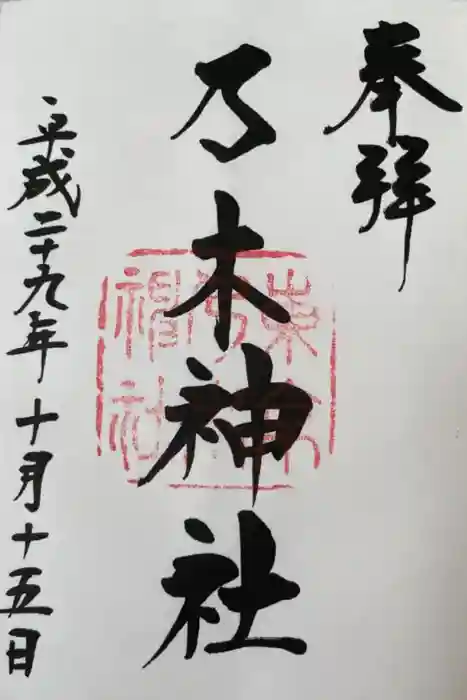 奉拝
乃木神社
平成二十九年十月十五日